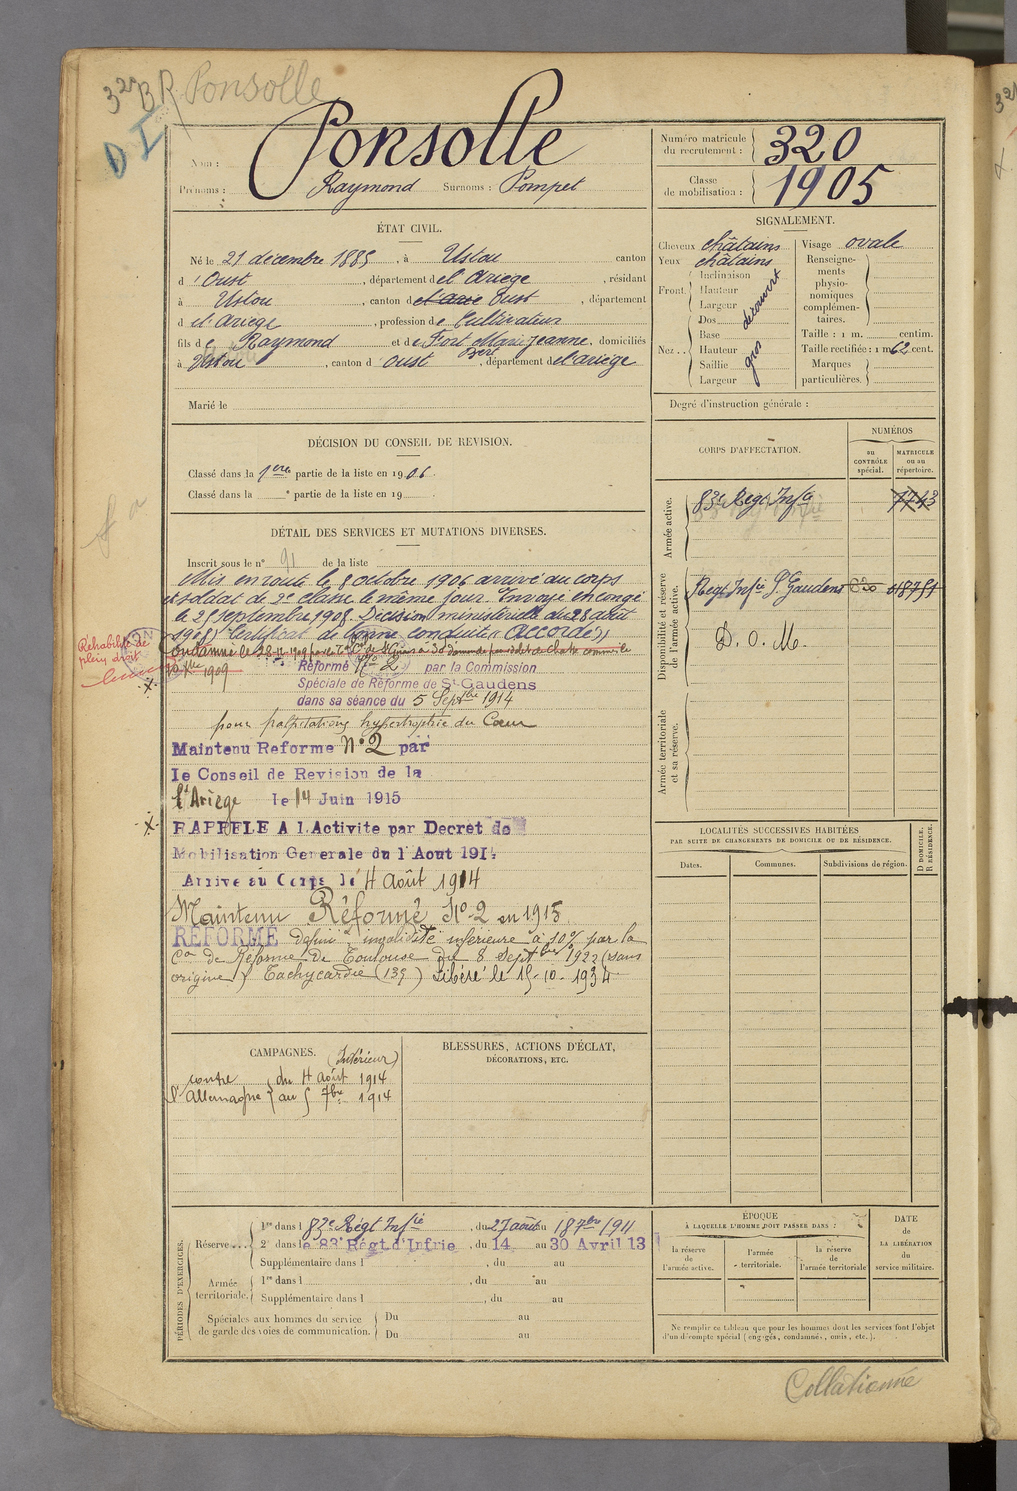 3 BR Ponsolle
D I
Nom : Ponsolle
Prénoms : Raymond Surnoms : Pompet
Numéro matricule du recrutement : 320
Classe de mobilisation : 1905
ÉTAT CIVIL.
Né le 21 décembre 1885, à Ustou canton
d'Oust, département de l'Ariège, résidant
à Ustou, canton d Oust, département
d el Ariège, profession de Cultivateur
fils de Raymond et de Fort Marie Jeanne, domiciliés
à Ustou, canton d'Oust, département de l'ariège
Marié le
SIGNALEMENT.
Cheveux châtains
Yeux châtains
Front Inclinaison
Hauteur
Largeur
découvert
Nez Dos
Base
Hauteur
Saillie
Largeur
gros
Visage ovale
Renseigne-
ments
physio-
nomiques
complémen-
taires.
Taille : 1 m. centim.
Taille rectifiée : 1 m 62 cent.
Marques
particulières.
Degré d'instruction générale :
DÉCISION DU CONSEIL DE REVISION.
Classé dans la 1ere partie de la liste en 1906.
Classé dans la e partie de la liste en 19
CORPS D'AFFECTATION.
NUMÉROS
au CONTRÔLE spécial.
MATRICULE ou au répertoire.
Armée active.
83e Regt Infie
1743
Disponibilité et réserve de l'armée active.
Regt Infie St Gaudens
D. O. M.
Armée territoriale et sa réserve.
DÉTAIL DES SERVICES ET MUTATIONS DIVERSES.
Inscrit sous le n° 91 de la liste
Mis en route le 8 octobre 1906 arrivé au corps
et soldat de 2e classe le même jour. Envoyé en congé
le 25 septembre 1908. Décision ministérielle du 28 août
1908) Certificat de bonne conduite « Accordé »
Réhabilité de
plein droit
Condamné le 28-11-1909 par le
1909
Réformé No 2 par la Commission
Spéciale de Réforme de St-Gaudens
dans sa séance du 5 Septbre 1914
pour palpitations hypertrophie du Cœur
Maintenu Reforme N° 2 par
le Conseil de Revision de la
l'Ariège le 14 Juin 1915
RAPPELE A l.Activite par Decret de
Mobilisation Generale du 1 Aout 1914
Arrive au Corps le 4 Août 1914
Maintenu Réformé No 2 en 1915
REFORMÉ défini invalidité inférieure à 10% par la
Con de Réforme de Toulouse du 8 Septbre 1922 (sans
origine) Tachycardie (135) Libéré le 15-10-1934
LOCALITÉS SUCCESSIVES HABITÉES
PAR SUITE DE CHANGEMENTS DE DOMICILE OU DE RÉSIDENCE.
Dates. Communes. Subdivisions de région.
D DOMICILE.
R RÉSIDENCE.
CAMPAGNES. (Intérieur)
contre du 4 Août 1914
l'Allemagne au 5 7bre 1914
BLESSURES, ACTIONS D'ÉCLAT,
DÉCORATIONS, ETC.
PÉRIODES D'EXERCICES.
Réserve... 1re dans l 83e Régt Infie, du 27 août au 18 7bre 1911
2e dans le 83e Régt d'Infrie, du 14 au 30 Avril 13
Supplémentaire dans l , du au
Armée territoriale. 1re dans l , du au
Supplémentaire dans l , du au
Spéciales aux hommes du service
de garde des voies de communication. Du au
Du au
ÉPOQUE
À LAQUELLE L'HOMME DOIT PASSER DANS :
la réserve de l'armée active.
l'armée territoriale.
la réserve de l'armée territoriale
DATE
DE
LA LIBÉRATION
du
service militaire.
Ne remplir ce tableau que pour les hommes dont les services font l'objet
d'un décompte spécial (engagés, condamnés, omis, etc.).
Collationné